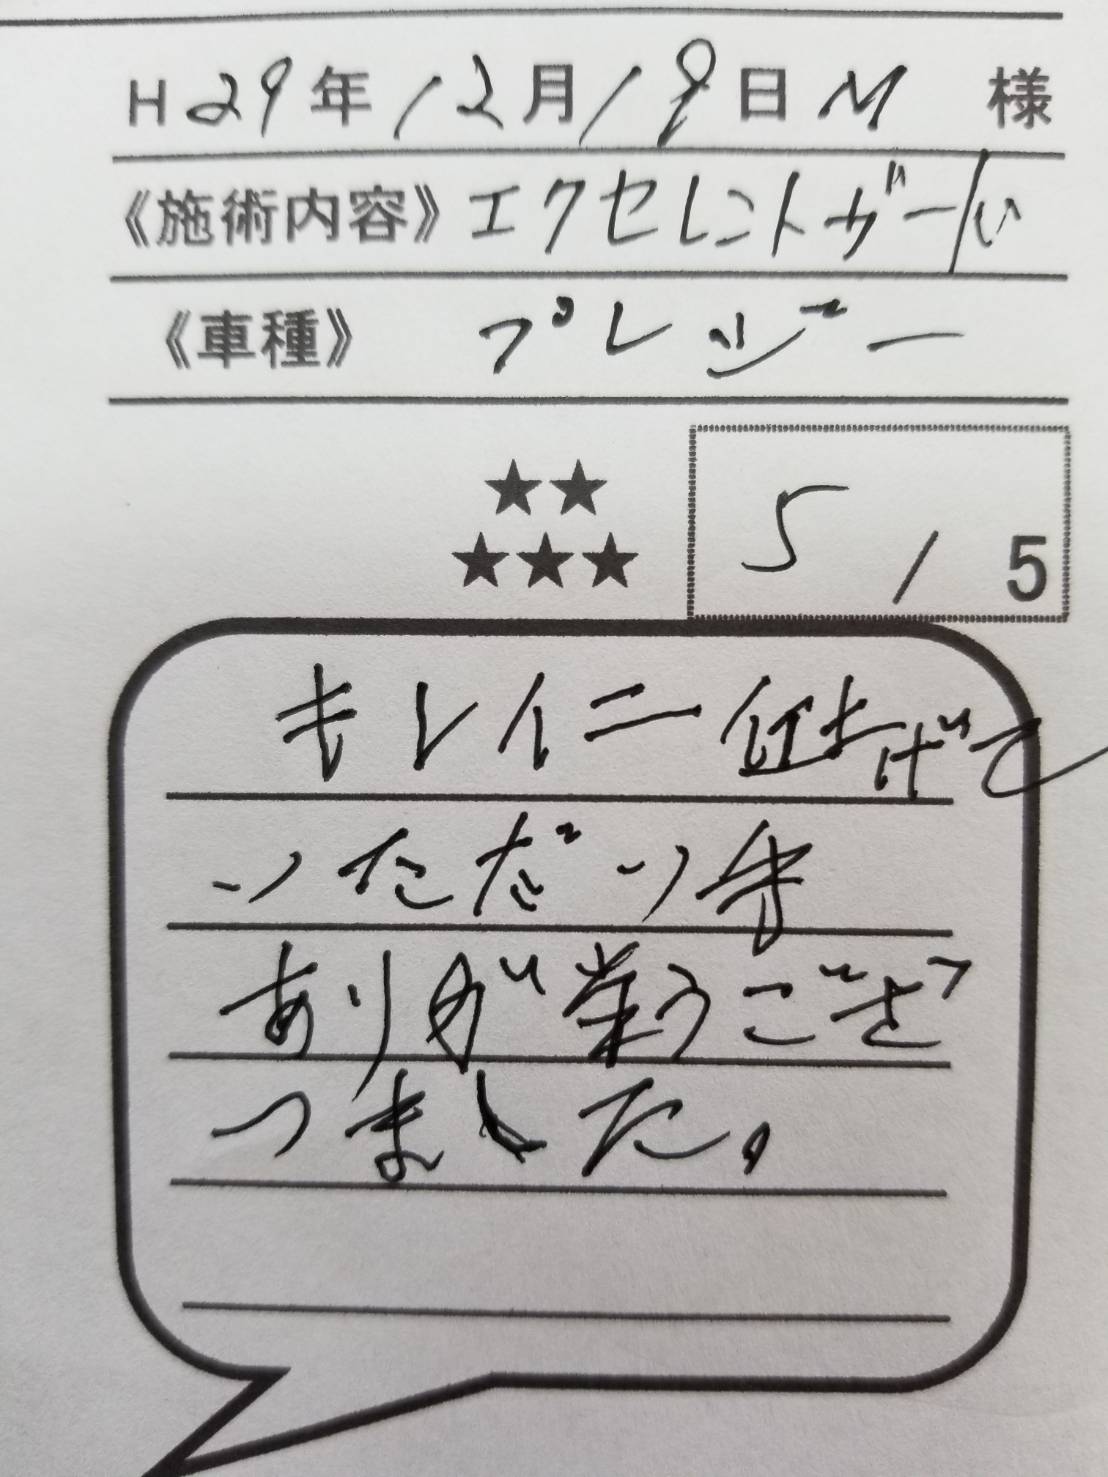 H29年12月18日M 様
《施術内容》エクセレントガード
《車種》 プレジー
★★
★★★
5 / 5
キレイニ仕上げて
いただいき
ありが荣うござ
いました。